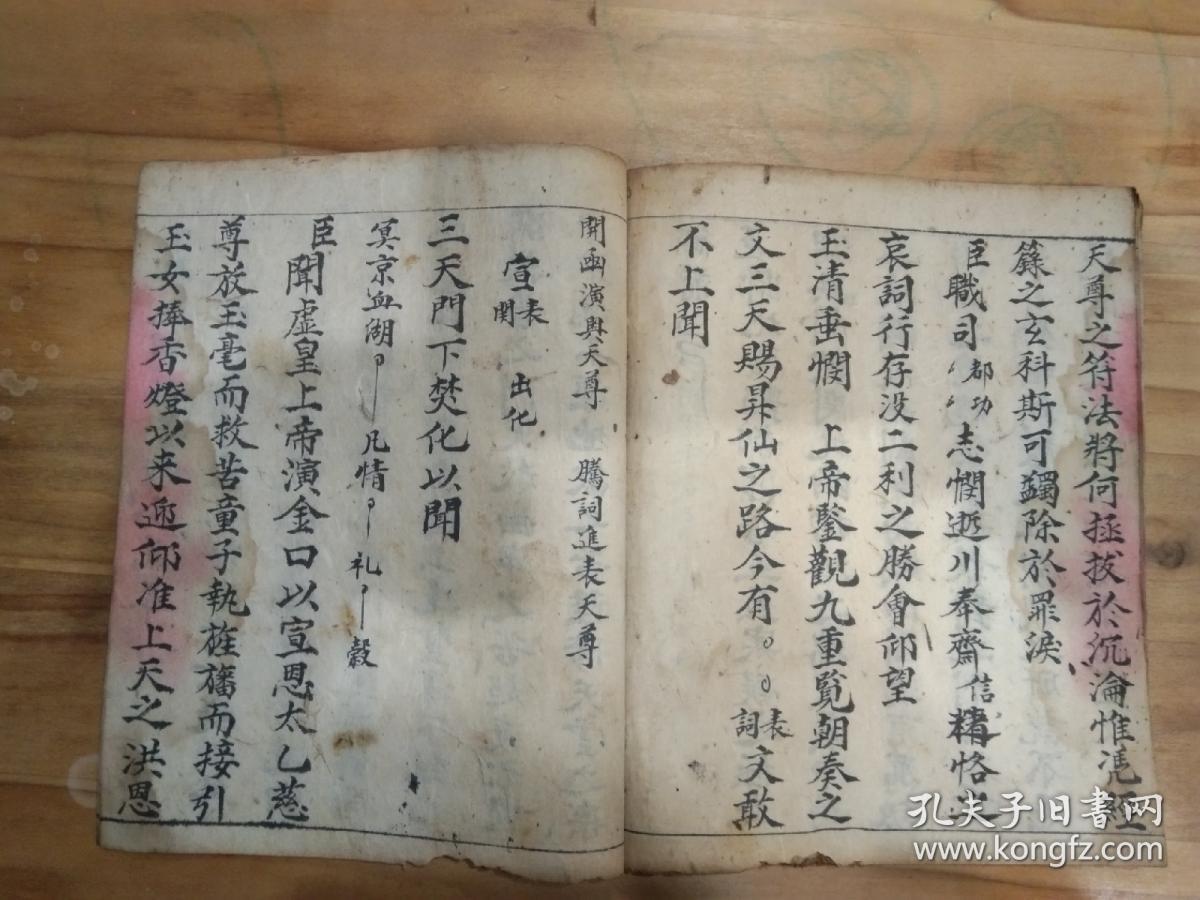 天尊之符法將何拯拔於沉淪惟凭經
籙之玄科斯可蠲除於罪淚
臣職司都功志憫逝川奉齋信
哀詞行存没二利之勝會仰望
玉清垂憫 上帝鑒觀九重覧朝奏之
文三天賜昇仙之路今有 表詞文敢
不上聞
開幽演與天尊 騰詞進表天尊
宣表関 出化
三天門下焚化以聞
冥京血湖 凡情 礼 縠
臣聞虚皇上帝演金口以宣恩太乙慈
尊放玉毫而救苦童子執旌旛而接引
玉女捧香燈以来迎仰准上天之洪恩
孔夫子旧书网
www.kongfz.com